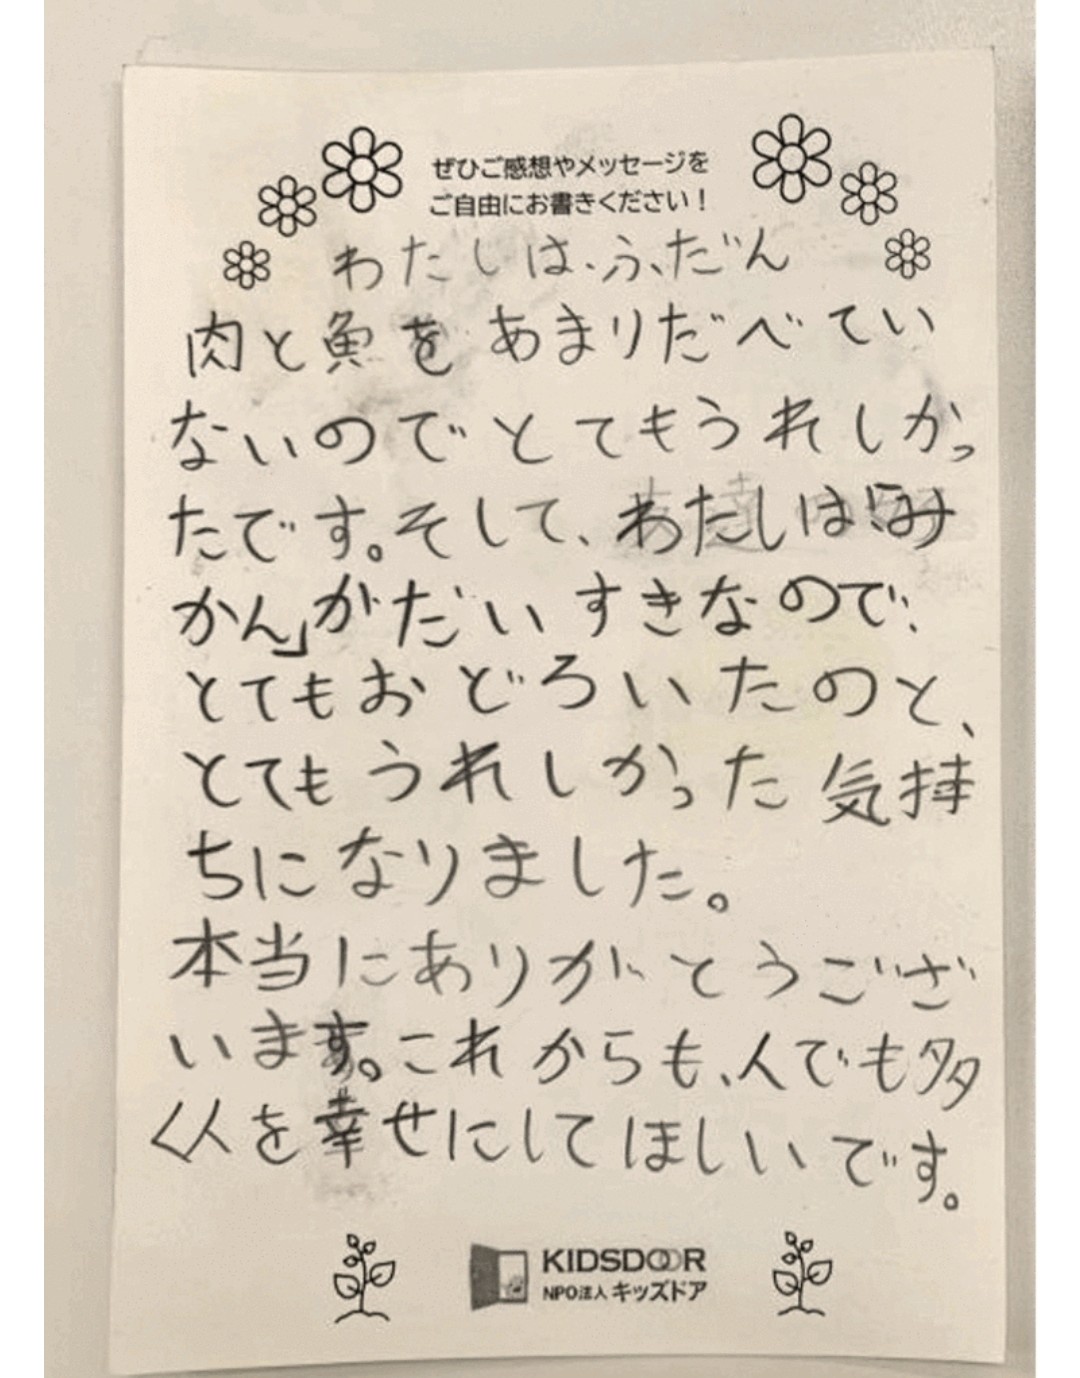 ぜひご感想やメッセージを
ご自由にお書きください！
わたしは、ふだん
肉と魚をあまりだべてい
ないのでとてもうれしかっ
たです。そして、わたしは「み
かん」がだいすきなので、
とてもおどろいたのと、
とてもうれしかった気持
ちになりました。
本当にありがとうござ
います。これからも、人でも多
く人を幸せにしてほしいです。
KIDSDOOR
NPO法人 キッズドア